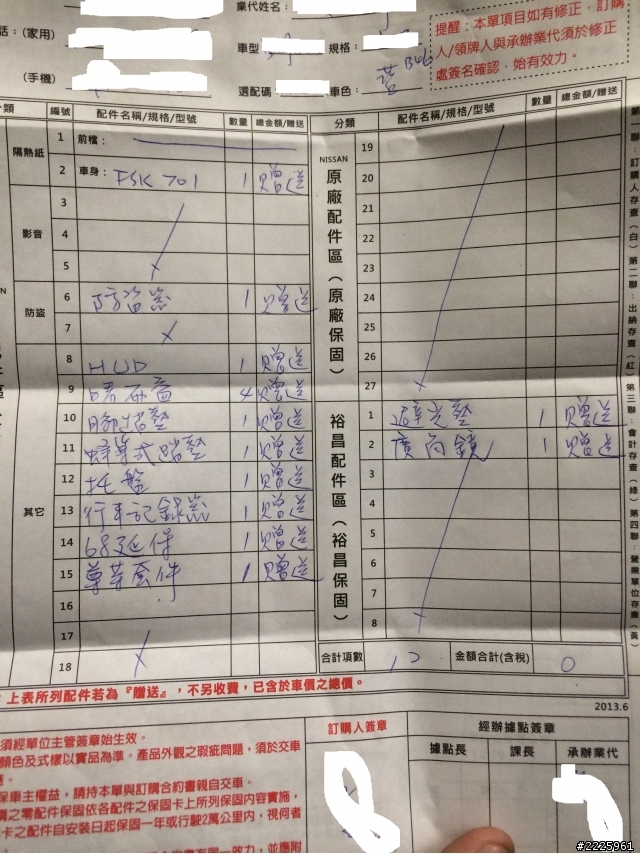 業代姓名:
話:(家用)
車型
規格:
(手機)
選配碼
車色:
藍 B46
提醒:本單項目如有修正,訂購
人/領牌人與承辦業代須於修正
處簽名確認,始有效力。
分類 編號 配件名稱/規格/型號 數量 總金額/贈送
隔熱紙
1 前檔:
2 車身: FSK 701 1 贈送
影音
3
4
5
防盜
6 防盜器 1 贈送
7
其它
8 HUD 1 贈送
9 晴雨窗 4 贈送
10 腳踏墊 1 贈送
11 蜂巢式踏墊 1 贈送
12 托盤 1 贈送
13 行車記錄器 1 贈送
14 68延保 1 贈送
15 尊榮套件 1 贈送
16
17
18
分類 配件名稱/規格/型號 數量 總金額/贈送
NISSAN
原廠配件區(原廠保固)
19
20
21
22
23
24
25
26
27
裕昌配件區(裕昌保固)
1 避光墊 1 贈送
2 廣角鏡 1 贈送
3
4
5
6
7
8
合計項數 12 金額合計(含稅) 0
上表所列配件若為『贈送』,不另收費,已含於車價之總價。
2013.6
第一聯:訂購人存查(白) 第二聯:出納存查(紅) 第三聯:會計存查(綠) 第四聯:營業單位存查(黃)
須經單位主管簽章始生效。
顏色及式樣以實品為準。產品外觀之瑕疵問題,須於交車
保車主權益,請持本單與訂購合約書親自交車。
購之零配件保固依各配件之保固卡上所列保固內容實施,
卡之配件自安裝日起保固一年或行駛2萬公里內,視何者
訂購人簽章
經辦據點簽章
據點長 課長 承辦業代
#2225961